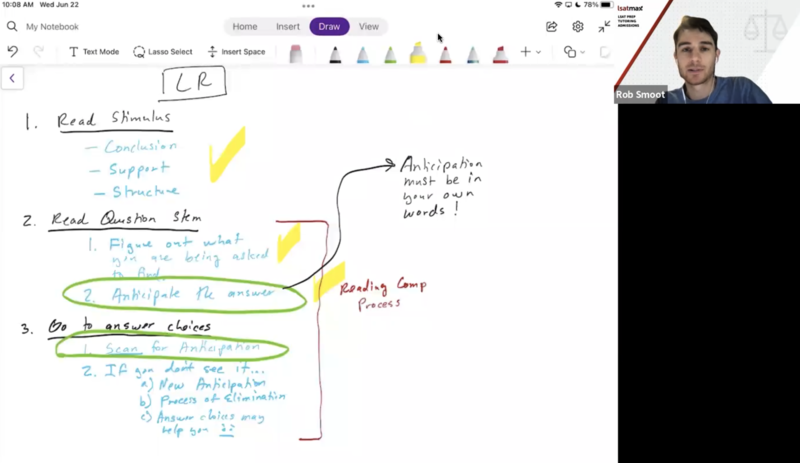 10:08 AM Wed Jun 22
78%
My Notebook
Home Insert Draw View
Text Mode Lasso Select Insert Space
lsatmax
LSAT PREP
TUTORING
ADMISSIONS
Rob Smoot
LR
1. Read Stimulus
– Conclusion
– Support
– Structure
2. Read Question Stem
1. Figure out what
you are being asked
to find
2. Anticipate the answer
Anticipation
must be in
your own
words!
Reading Comp
Process
3. Go to answer choices
1. Scan for Anticipation
2. If you don't see it...
a) New Anticipation
b) Process of Elimination
c) Answer choices may
help you